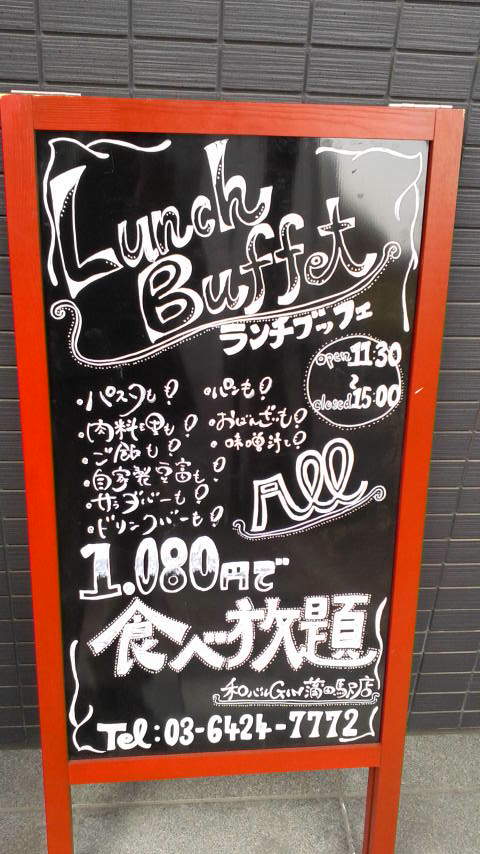 Lunch
Buffet
ランチブッフェ
open 11:30
〜
closed 15:00
・パスタも!
・肉料理も!
・ご飯も!
・自家製豆富も!
・サラダバーも!
・ドリンクバーも!
・パンも!
・おばんざいも!
・味噌汁も!
All
1.080円で
食べ放題
和バル 蒲田駅店
Tel:03-6424-7772